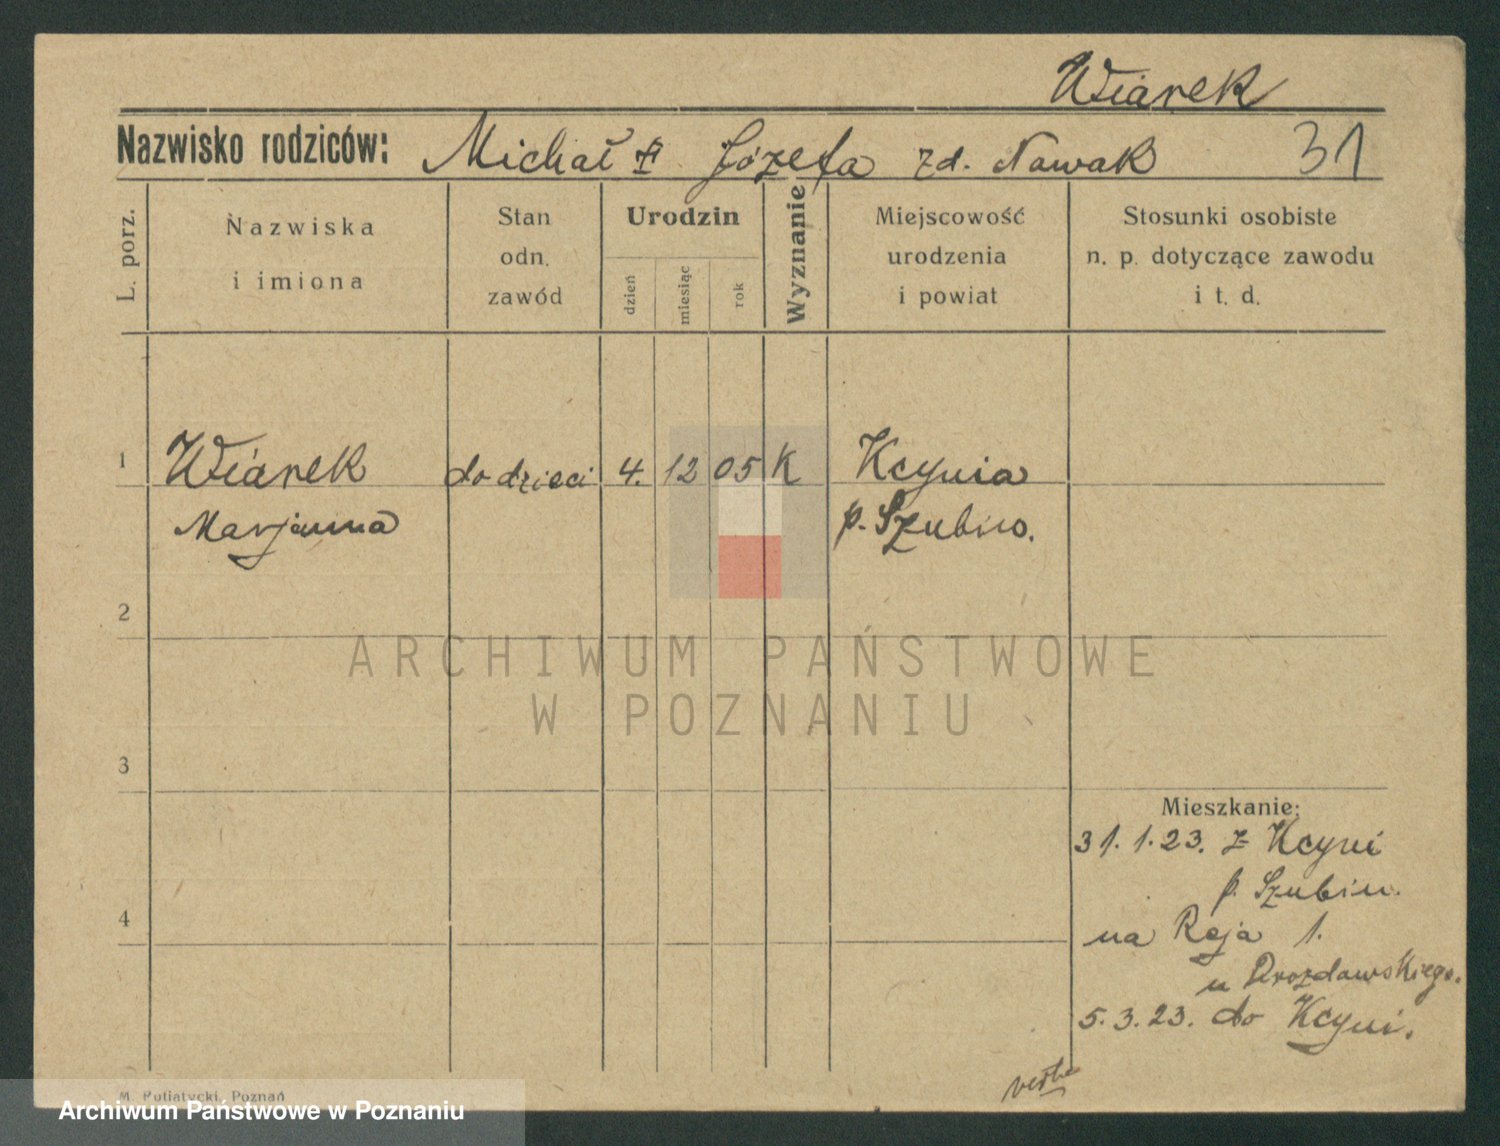 Wiarek
Nazwisko rodziców: Michał i Józefa zd. Nowak 31
L. porz.
Nazwiska
i imiona
Stan
odn.
zawód
Urodzin
dzień
miesiąc
rok
Wyznanie
Miejscowość
urodzenia
i powiat
Stosunki osobiste
n. p. dotyczące zawodu
i t. d.
1 Wiarek do dzieci 4. 12 05 K Kcynia
Marjanna p. Szubin.
2
ARCHIWUM PAŃSTWOWE
W POZNANIU
3
Mieszkanie:
31. 1. 23. z Kcyni
p. Szubin.
4
na Reja 1.
u Drozdawskiego.
5. 3. 23. do Kcyni.
M. Putiatycki, Poznań
Archiwum Państwowe w Poznaniu